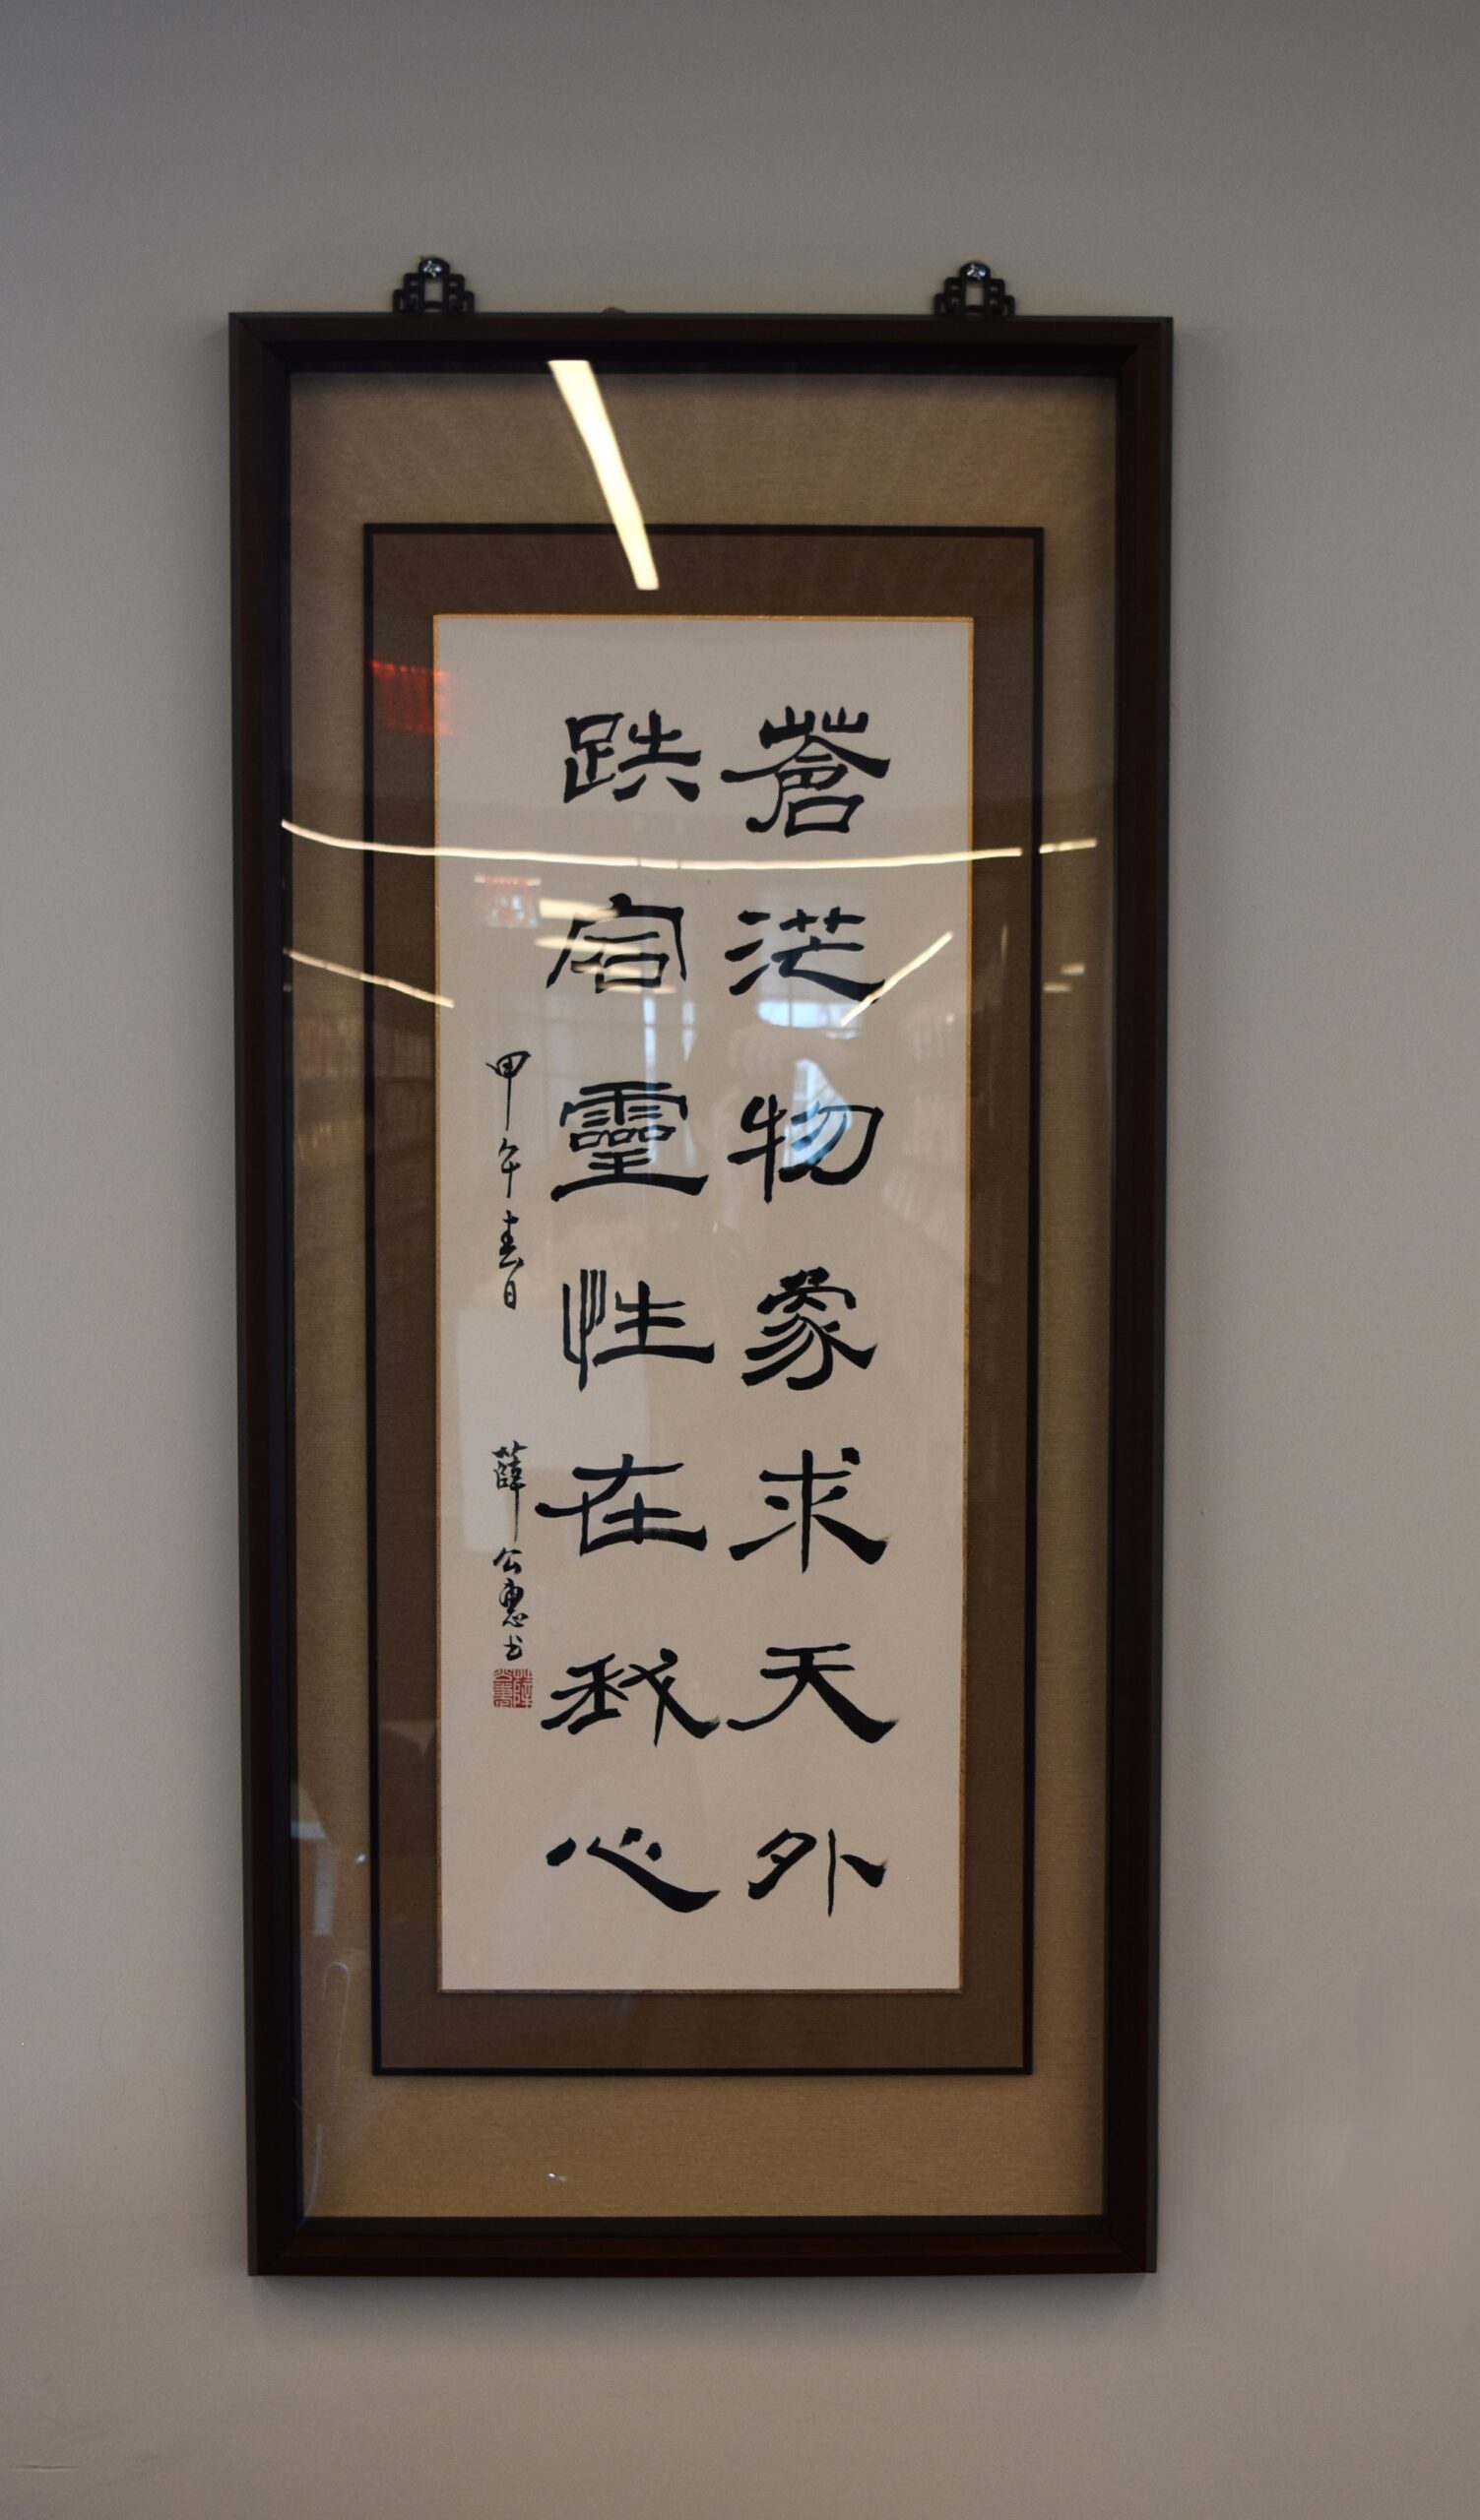 蒼茫物象求天外
跌宕靈性在我心
甲午春日
薛公惠书